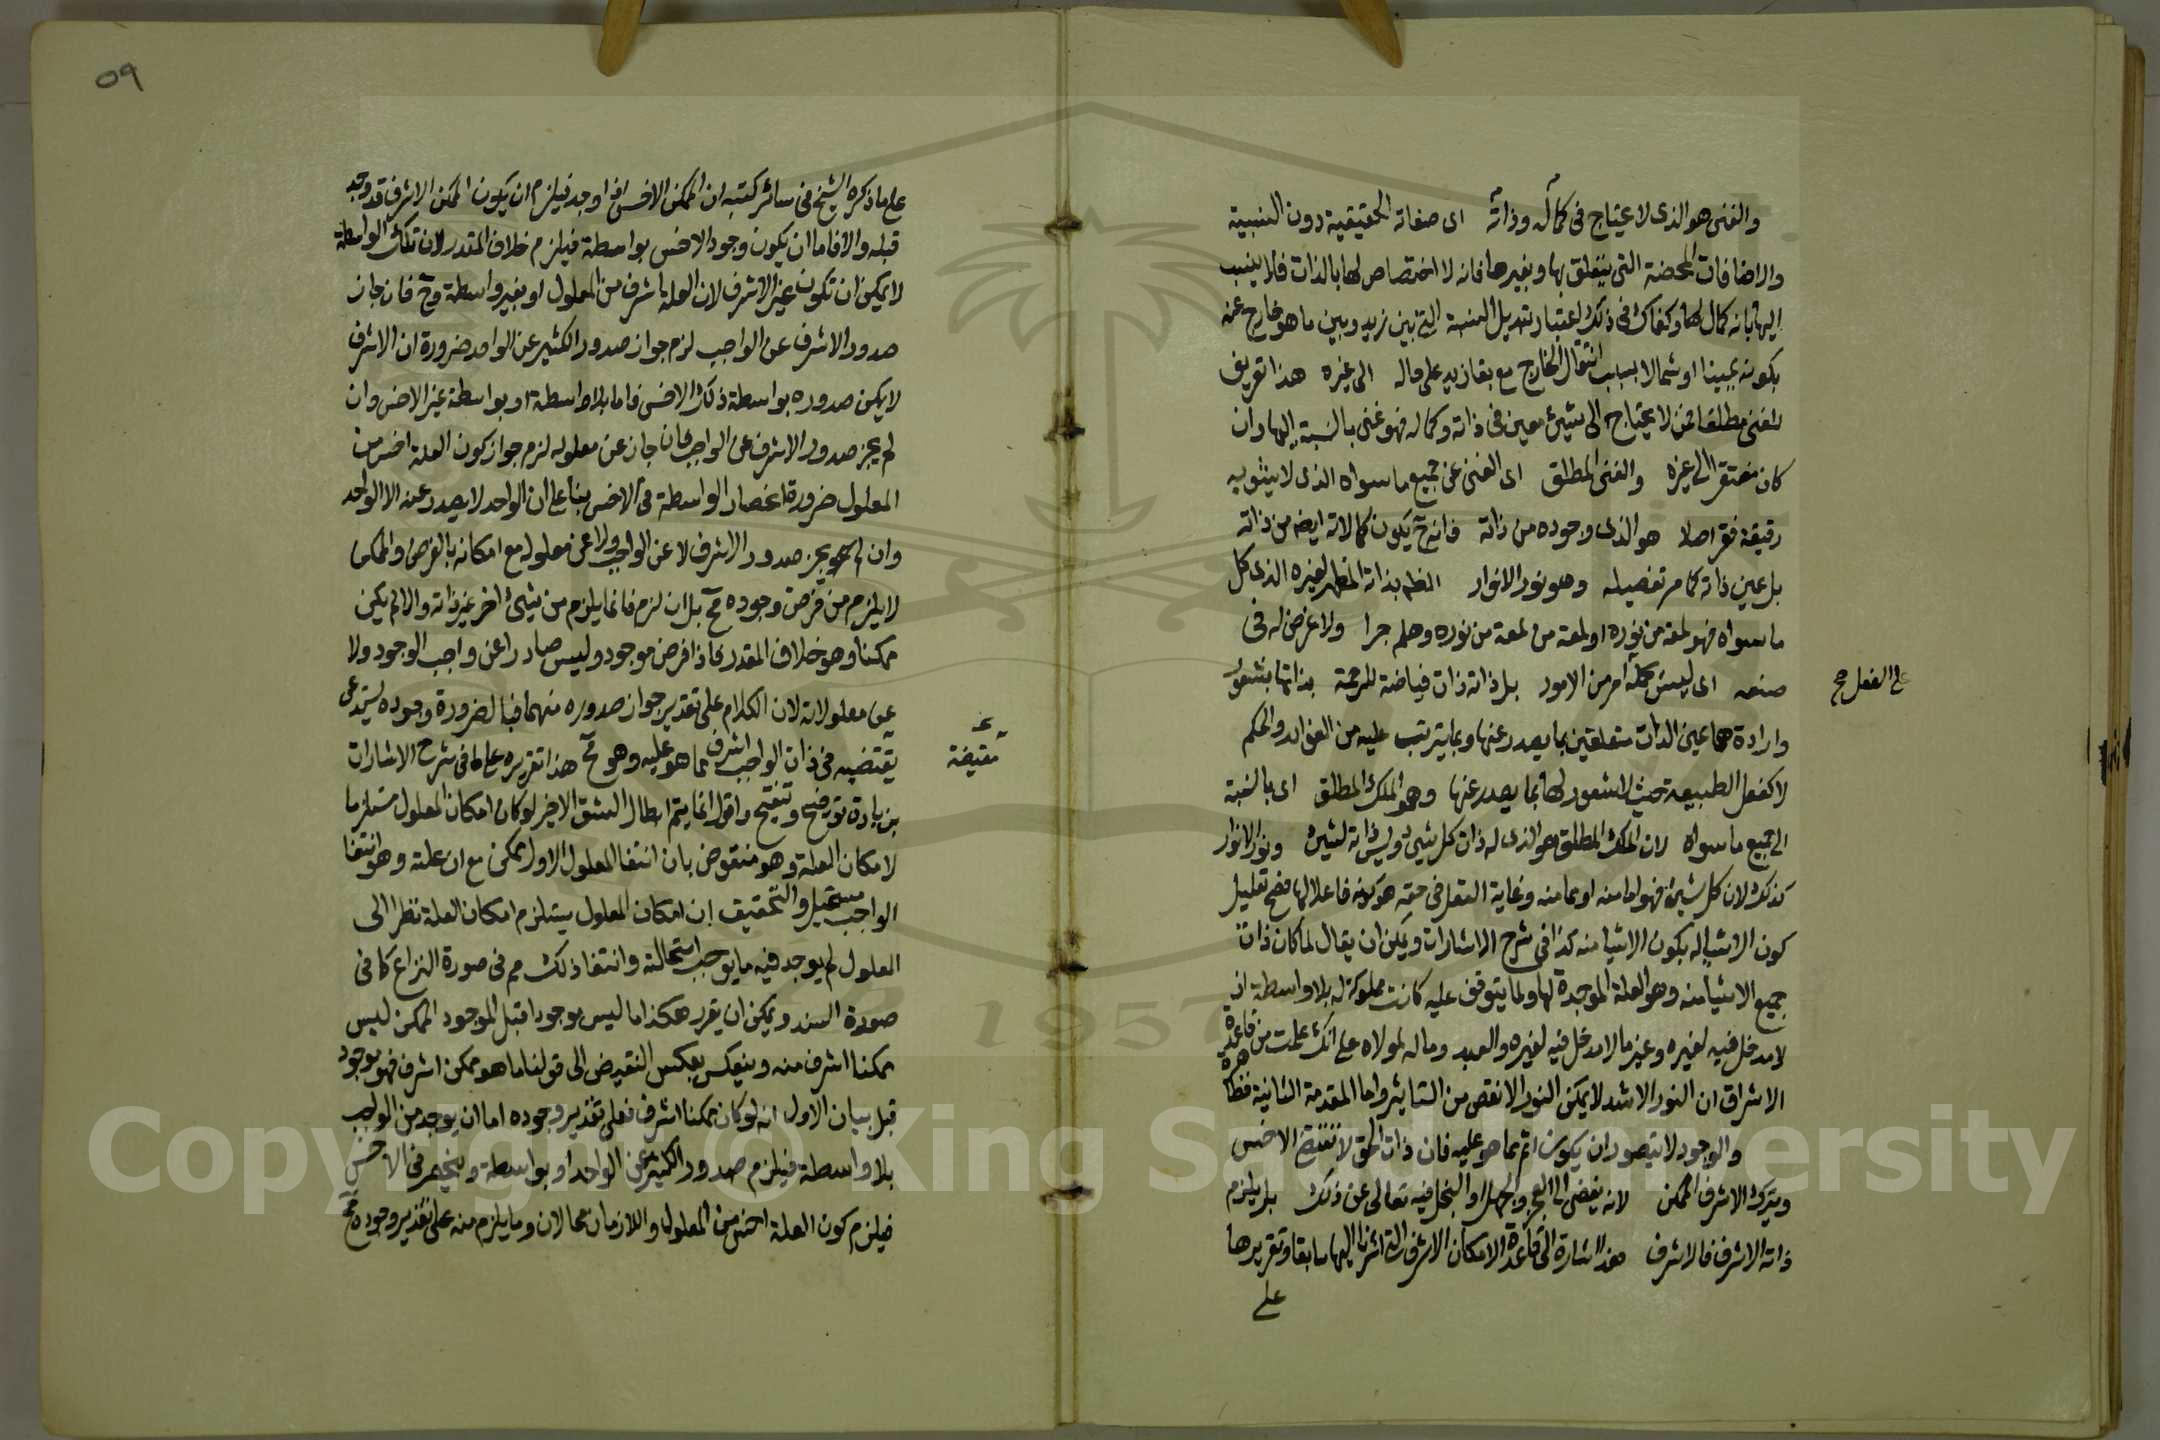 والغنى هو الذى لا يحتاج فى كماله وذاته اى صفاته الحقيقية دون النسبية
والاضافات المحضة التى يتعلق بها وبغيرها فانه لا اختصاص لها بالذات فلا ينسب
اليها بانه كمال لها وكفاك فى ذلك اعتبار تبديل النسبة التى بين زيد وبين ما هو خارج عنه
بكونه يمينا او شمالا بسبب انتقال الخارج مع بقا زيد على حاله الى غيره هذا تعريف
الغنى مطلقا فمن لا يحتاج الى شيئ معين فى ذاته وكماله فهو غنى بالنسبة اليها وان
كان مفتقرا الى غيره والغنى المطلق اى الغنى عن جميع ما سواه الذى لا يشوبه
رقيقة فقر اصلا هو الذى وجوده من ذاته فانه ح يكون كمالاته ايضه من ذاته
بل عين ذاته كما مر تفصيله وهو نور الانوار الظهر بذاته المظهر لغيره الذى كل
ما سواه فهو لمعة من نوره او لمعة من لمعة من نوره وهلم جرا ولا غرض له فى
صنعه اى ليس كماله امر من الامور بل ذاته ذات فياضة للرحمة بذاتها بشعور
على الفعل صح
وارادة هما عين الذات متعلقين بما يصدر عنها وبما يترتب عليه من الفوائد والحكم
لا كفعل الطبيعة حيث لا شعور لها بما يصدر عنها وهو الملك المطلق اى بالنسبة
الى جميع ما سواه لان الملك المطلق هو الذى له ذات كل شيئ وليس ذاته لشيئ ونور الانوار
كذلك لان كل شيئ فهو اما منه او مما منه وغاية الفعل فى حقه هو كونه فاعلا لها فصح تعليل
كون الاشيا له بكون الاشيا منه كذا فى شرح الاشارات ويمكن ان يقال لما كان ذات
جميع الاشيا منه وهو العلة الموجدة لها ولما يتوقف عليه كانت مملوكة له بلا واسطة اذ
لا مدخل فيه لغيره وغيره مالا مدخل فيه لغيره والعبد وما له لمولاه على انك علمت من قاعدة
الاشراق ان النور الاشد لا يمكن النور الانقص من التاثير واما المقدمة الثانية فظاهرة
والوجود لا يتصور ان يكون اتم مما هو عليه فان ذات الحق لا تقتضى الاخس
ويترك الاشرف الممكن لانه يفضى الى العجز والجهل او البخل فيه تعالى عن ذلك بل يلزم
ذاته الاشرف فالاشرف هذا اشارة الى قاعدة الامكان الاشرف التى اشرنا اليها سابقا وتقريرها
على
٥٩
على ما ذكره الشيخ فى سائر كتبه ان الممكن الاخس اذا وجد فيلزم ان يكون الممكن الاشرف قد وجد
قبله والا فاما ان يكون وجود الاخس بواسطة فيلزم خلاف المقدر لان تلك الواسطة
لا يمكن ان تكون غير الاشرف لان العلة اشرف من المعلول او بغير واسطة وح فان جاز
صدور الاشرف عن الواجب لزم جواز صدور الكثير عن الواحد ضرورة ان الاشرف
لا يمكن صدوره بواسطة ذلك الاخس فاما بلا واسطة او بواسطة غير الاخس وان
لم يجز صدور الاشرف عن الواجب فان جاز عن معلوله لزم جواز كون العلة اخس من
المعلول ضرورة انحصار الواسطة فى الاخس بنا على ان الواحد لا يصدر عنه الا الواحد
وان لم يجز صدور الاشرف لا عن الواجب ولا عن معلوله مع امكانه بالفرض والممكن
لا يلزم من فرض وجوده مح بل ان لزم فانما يلزم من شيئ اخر غير ذاته والا لم يكن
ممكنا وهو خلاف المقدر فاذا فرض موجود وليس صادرا عن واجب الوجود ولا
عن معلولاته لان الكلام على تقدير جواز صدوره منهما فبالضرورة وجوده يستدعى
مقتضية
يقتضيه فى ذات الواجب اشرف مما هو عليه وهو مح هذا تقريره على ما فى شرح الاشارات
بزيادة توضيح وتنقيح واقول انما يتم ابطال الشق الاخير لو كان امكان المعلول مستلزما
لامكان العلة وهو منقوض بان انتفا المعلول الاول ممكن مع ان علته وهو انتفا
الواجب مستحيل والتحقيق ان امكان المعلول يستلزم امكان العلة نظرا الى
المعلول لم يوجد فيه ما يوجب استحالته وانتفا ذلك مم فى صورة النزاع كما فى
صورة السند ويمكن ان يقرر هكذا ما ليس بوجود قبل الموجود الممكن ليس
ممكنا اشرف منه وينعكس بعكس النقيض الى قولنا ما هو ممكن اشرف فهو موجود
قبل بيان الاول انه لو كان ممكنا اشرف فعلى تقدير وجوده اما ان يوجد من الواجب
بلا واسطة فيلزم صدور الكثير عن الواحد او بواسطة وينحصر فى الاخس
فيلزم كون العلة اخس من المعلول واللازمان محالان وما يلزم منه على تقدير وجوده مح